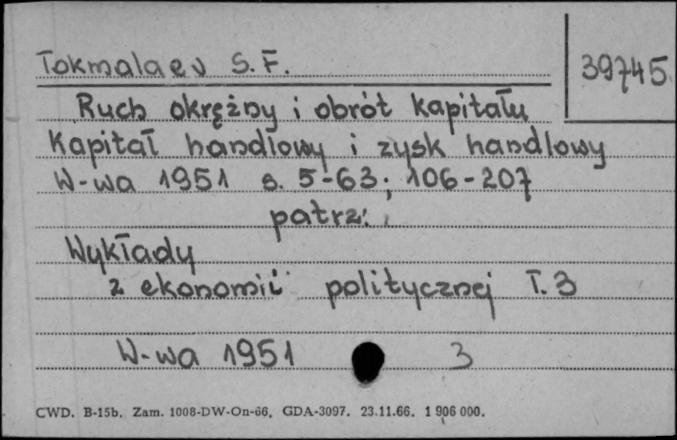 Tokmalaev S.F.
39745
Ruch okrężny i obrót kapitału
Kapitał handlowy i zysk handlowy
W-wa 1951 s. 5-63; 106-207
patrz:
Wykłady
z ekonomii politycznej T. 3
W-wa 1951 3
CWD. B-15b. Zam. 1008-DW-On-66. GDA-3097. 23.11.66. 1 906 000.